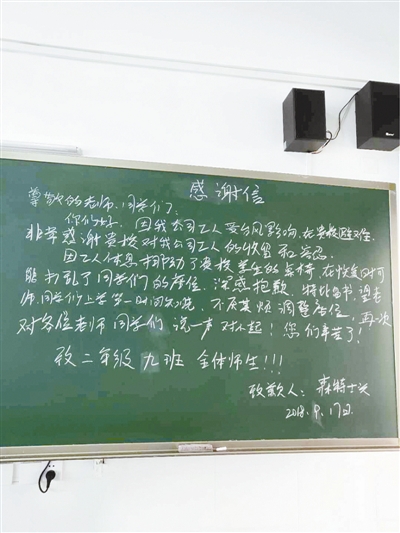 感谢信
尊敬的老师、同学们:
你们好,因我公司工人受台风影响,在贵校避风停
非常感谢贵校对我公司工人的收留和容忍。
因工人休息挪动了贵校学生的桌椅,在恢复时可
能打乱了同学们的座位,深感抱歉,特此告书,望老
师、同学们上学第一时间
不厌其烦 调整座位,再一次
对各位老师 同学们 说一声 对不起!您们辛苦了!
致二年级 九班 全体师生!!!
致歉人:森特士兴
2018.9.17日